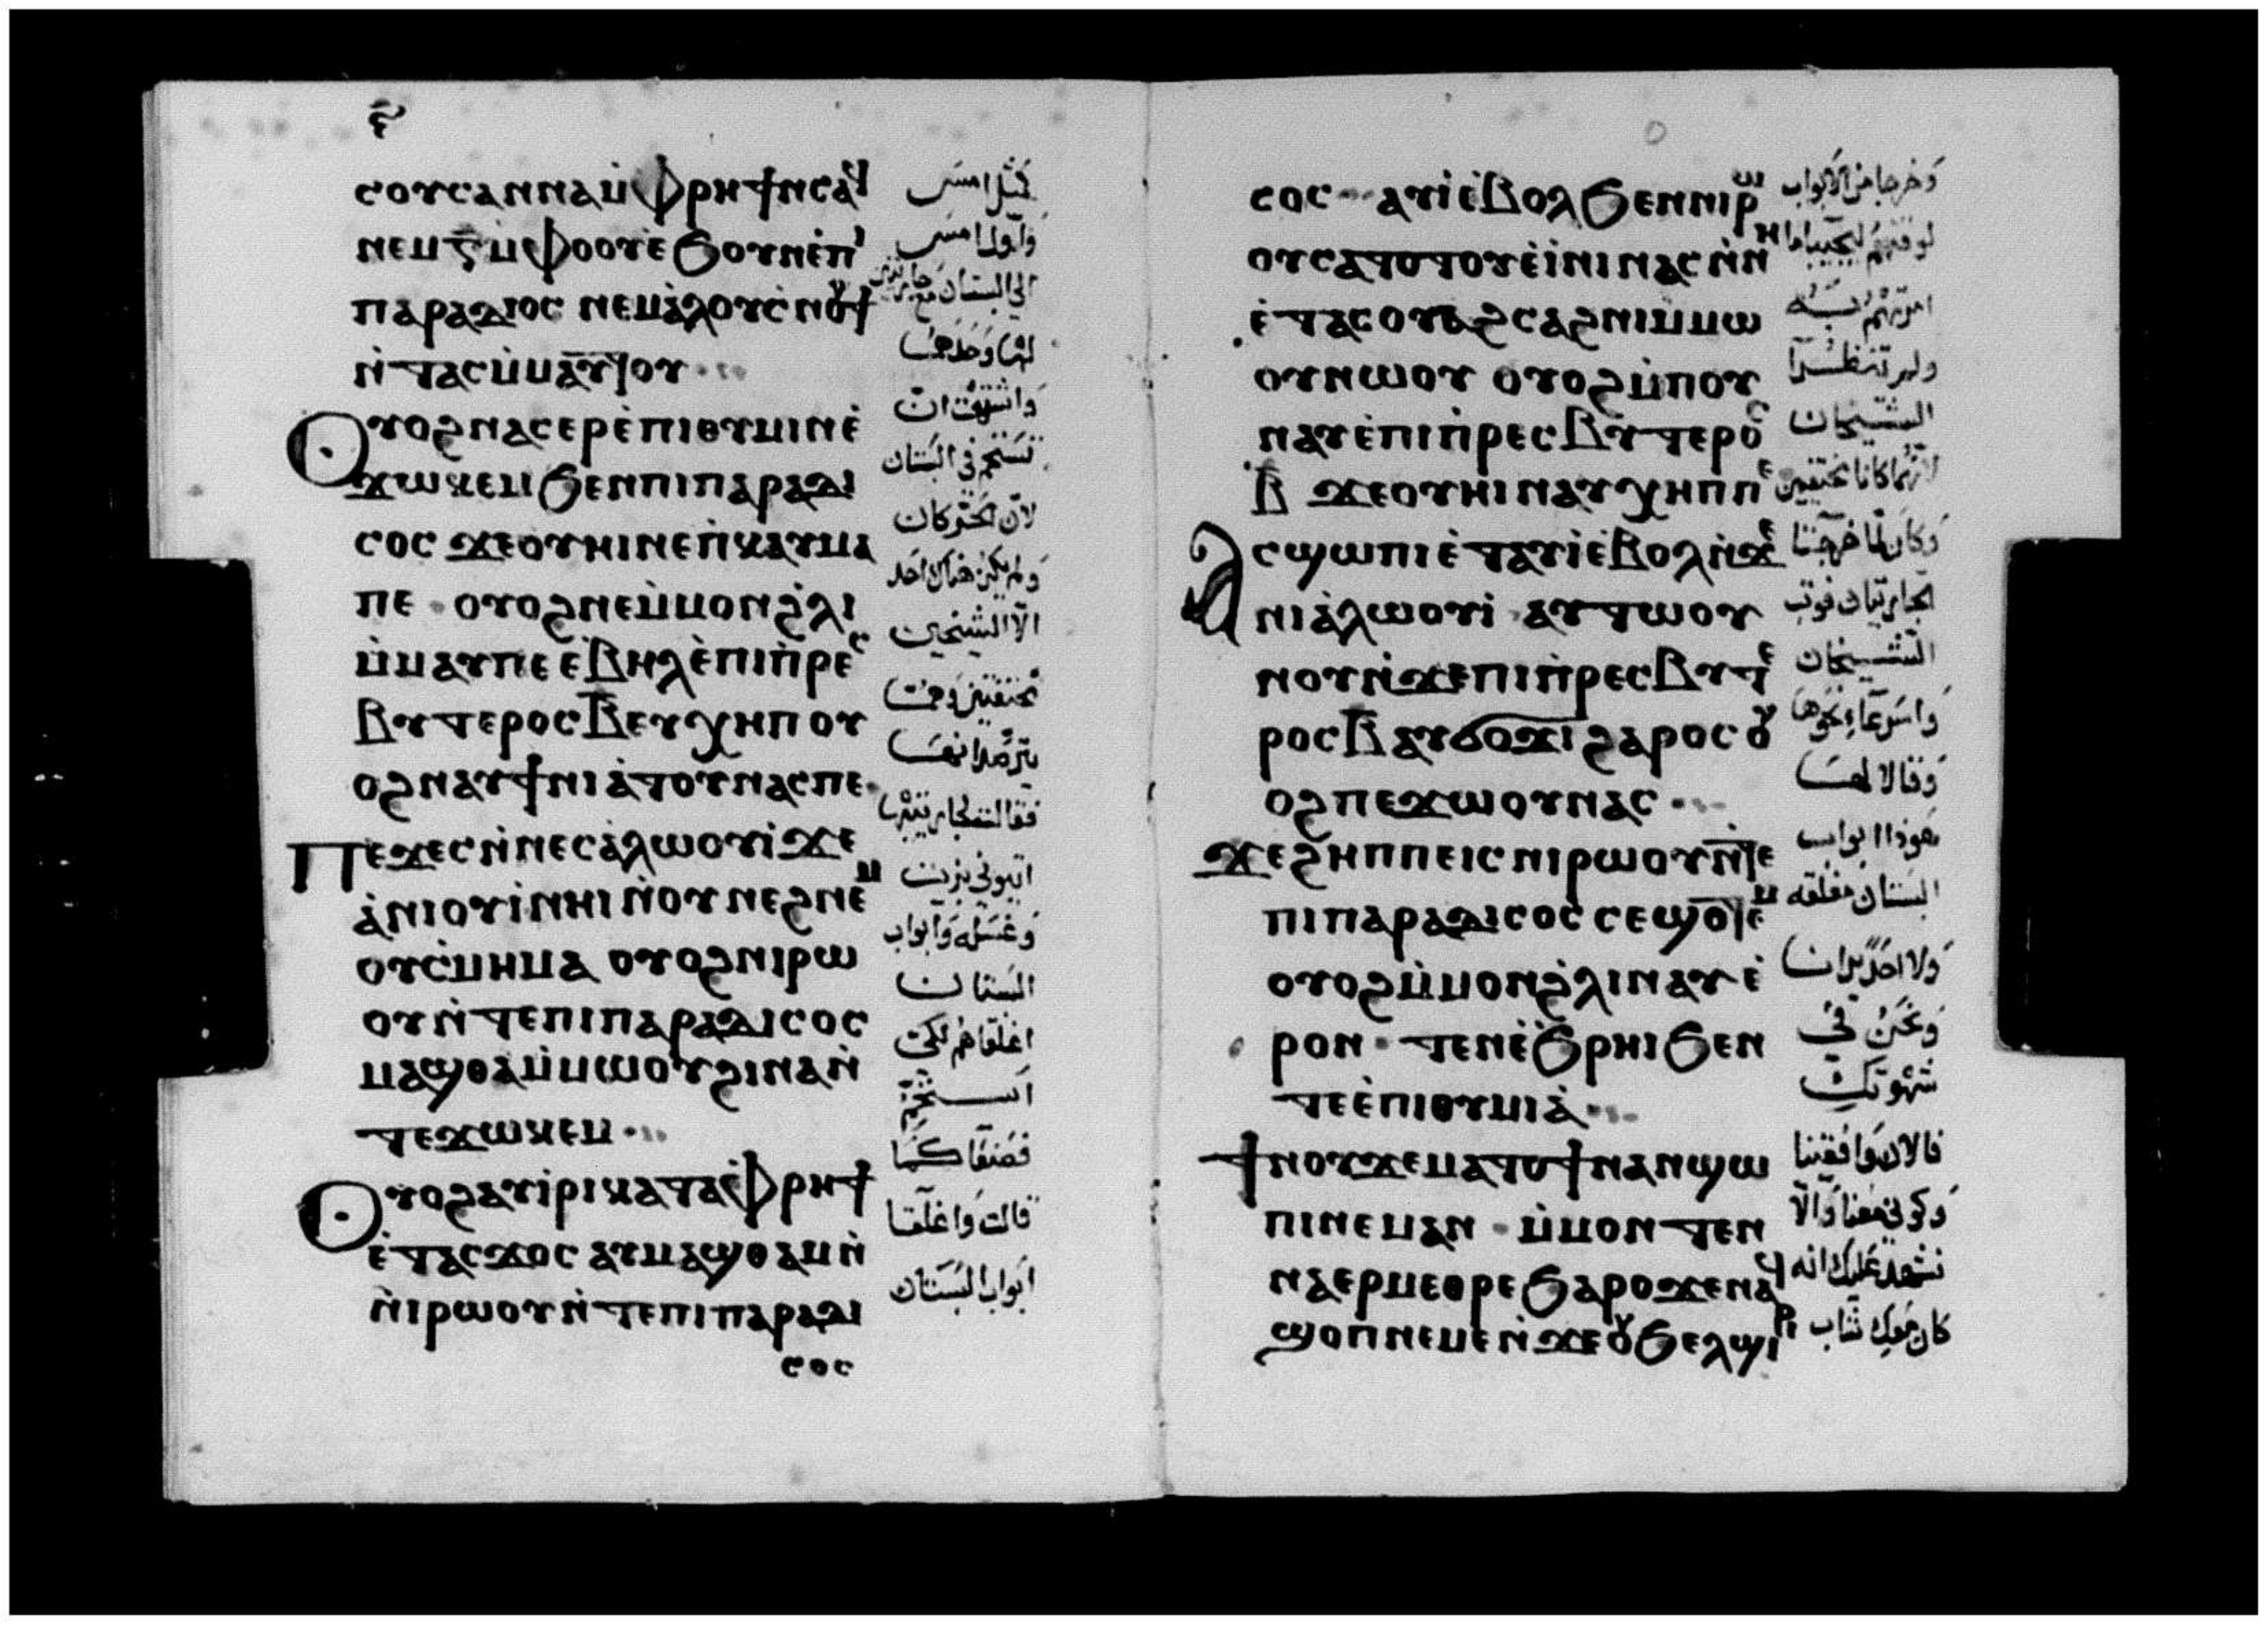 ⲥⲟⲩⲥⲁⲛⲛⲁⲙ̀ⲫⲣⲏϯⲛⲥⲁϥ
ⲛⲉⲙⲋⲙ̀ⲫⲟⲟⲩⲉ̀ϧⲟⲩⲛⲉ̀ⲡⲓ
ⲡⲁⲣⲁⲇⲓⲟⲥ ⲛⲉⲙⲁ̀ⲗⲟⲩⲥ̀ⲛⲟⲩϯ
ⲛ̀ⲧⲁⲥⲙ̀ⲙⲁⲩ̄ⲁ̄ⲧⲟⲩ
ⲟⲩⲟϩⲛⲁⲥⲉⲣⲉ̀ⲡⲓⲑⲩⲙⲓⲛⲉ̀
ϫⲱⲕⲉⲙϧⲉⲛⲡⲓⲡⲁⲣⲁⲇⲓ
ⲥⲟⲥ ϫⲉⲟⲩⲏⲓⲛⲉⲡ̀ⲕⲁⲩⲙⲁ
ⲡⲉ ⲟⲩⲟϩⲛⲉⲙ̀ⲙⲟⲛϩ̀ⲗⲓ
ⲙ̀ⲙⲁⲩⲡⲉ ⲉ̀ⲃⲏⲗⲉ̀ⲡⲓⲡ̀ⲣⲉⲥ
ⲃⲩⲧⲉⲣⲟⲥⲃ̄ⲉⲩⲭⲏⲡ ⲟⲩ
ⲟϩⲛⲁⲩϯⲛⲓⲁ̀ⲧⲟⲩⲛⲁⲥⲡⲉ
ⲡⲉϫⲉⲥⲛ̀ⲛⲉⲥⲁ̀ⲗⲱⲟⲩⲓ̀ϫⲉ
ⲁ̀ⲛⲓⲟⲩⲓ̀ⲛⲏⲓⲛ̀ⲟⲩⲛⲉϩⲛⲉⲙ
ⲟⲩⲥ̀ⲙⲏⲙⲁ ⲟⲩⲟϩⲛⲓⲣⲱ
ⲟⲩⲛ̀ⲧⲉⲡⲓⲡⲁⲣⲁⲇⲓⲥⲟⲥ
ⲙⲁϣⲑⲁⲙ̀ⲙⲱⲟⲩϩⲓⲛⲁⲛ̀
ⲧⲉϫⲱⲕⲉⲙ
ⲟⲩⲟϩⲁⲩⲓ̀ⲣⲓⲕⲁⲧⲁⲫ̀ⲣⲏϯ
ⲉ̀ⲧⲁⲥϫⲟⲥ ⲁⲩⲙⲁϣⲑⲁⲙⲛ̀
ⲛ̀ⲓⲣⲱⲟⲩⲛ̀ⲧⲉⲡⲓⲡⲁⲣⲁⲇⲓ
ⲥⲟⲥ
كمثل امس
واول امس
الي البستان مع جاريتين
لها وحدها
واشتهت ان
تستحم في البستان
لان الحر كان
ولم يكن هناك احد
الا الشيخين
مختفيين وهما
يترصدانها
فقالت لجاريتيها
ايتوني بزيت
وغسله وابواب
البستان
اغلقاهم لكي
استحم
فصنعا كما
قالت واغلقا
ابواب البستان
ⲥⲟⲥ ⲁⲩⲓ̀ⲉ̀ⲃⲟⲗϧⲉⲛⲛⲓⲣⲱ
ⲟⲩⲥⲁⲧⲟⲧⲟⲩⲉ̀ⲓ̀ⲛⲓⲛⲁⲥⲛ̀ⲛⲏ
ⲉ̀ⲧⲁⲥⲟⲩⲁϩⲥⲁϩⲛⲓⲙ̀ⲙⲱ
ⲟⲩⲛⲱⲟⲩ ⲟⲩⲟϩⲙ̀ⲡⲟⲩ
ⲛⲁⲩⲉ̀ⲡⲓⲡ̀ⲣⲉⲥⲃⲩⲧⲉⲣⲟⲥ
ⲃ̄ ϫⲉⲟⲩⲏⲓⲛⲁⲩⲭⲏⲡⲡⲉ
ⲁⲥϣⲱⲡⲓⲉ̀ⲧⲁⲩⲓ̀ⲉ̀ⲃⲟⲗⲛ̀ϫⲉ
ⲛⲓⲁ̀ⲗⲱⲟⲩⲓ̀ ⲁⲩⲧⲱⲟⲩ
ⲛⲟⲩⲛ̀ϫⲉⲡⲓⲡ̀ⲣⲉⲥⲃⲩⲧⲉ
ⲣⲟⲥⲃ̄ⲁⲩϭⲟϫⲓϩⲁⲣⲟⲥⲟⲩ
ⲟϩⲡⲉϫⲱⲟⲩⲛⲁⲥ
ϫⲉϩⲏⲡⲡⲉⲓⲥⲛⲓⲣⲱⲟⲩⲛ̀ⲧⲉ
ⲡⲓⲡⲁⲣⲁⲇⲓⲥⲟⲥ ⲥⲉϣⲟⲧⲉⲙ
ⲟⲩⲟϩⲙ̀ⲙⲟⲛϩ̀ⲗⲓⲛⲁⲩⲉ̀
ⲣⲟⲛ ⲧⲉⲛⲉ̀ϧ̀ⲣⲏⲓϧⲉⲛ
ⲧⲉⲉ̀ⲡⲓⲑⲩⲙⲓⲁ̀
ϯⲛⲟⲩϫⲉⲙⲁⲧⲟϯⲛⲁⲛϣⲱ
ⲡⲓⲛⲉⲙⲁⲛ ⲙ̀ⲙⲟⲛ ⲧⲉⲛ
ⲛⲁⲉⲣⲙⲉⲑⲣⲉϧⲁⲣⲟϫⲉⲛⲁϥ
ϣⲟⲡⲛⲉⲙⲉⲛ̀ϫⲉⲟⲩϧⲉⲗϣⲓⲣⲓ
وخرجا من الابواب
امرتهم به
ولم تنظرا
الشيخان
لانهما كانا مختفيين
وكان لما خرجتا
الجاريتان فوثب
الشيخان
واسرعا نحوها
وقالا لها
هوذا ابواب
البستان مغلقه
ولا احد يرانا
ونحن في
شهوتك
فالان وافقينا
وكوني معنا والا
نشهد عليك انه
كان معك شاب